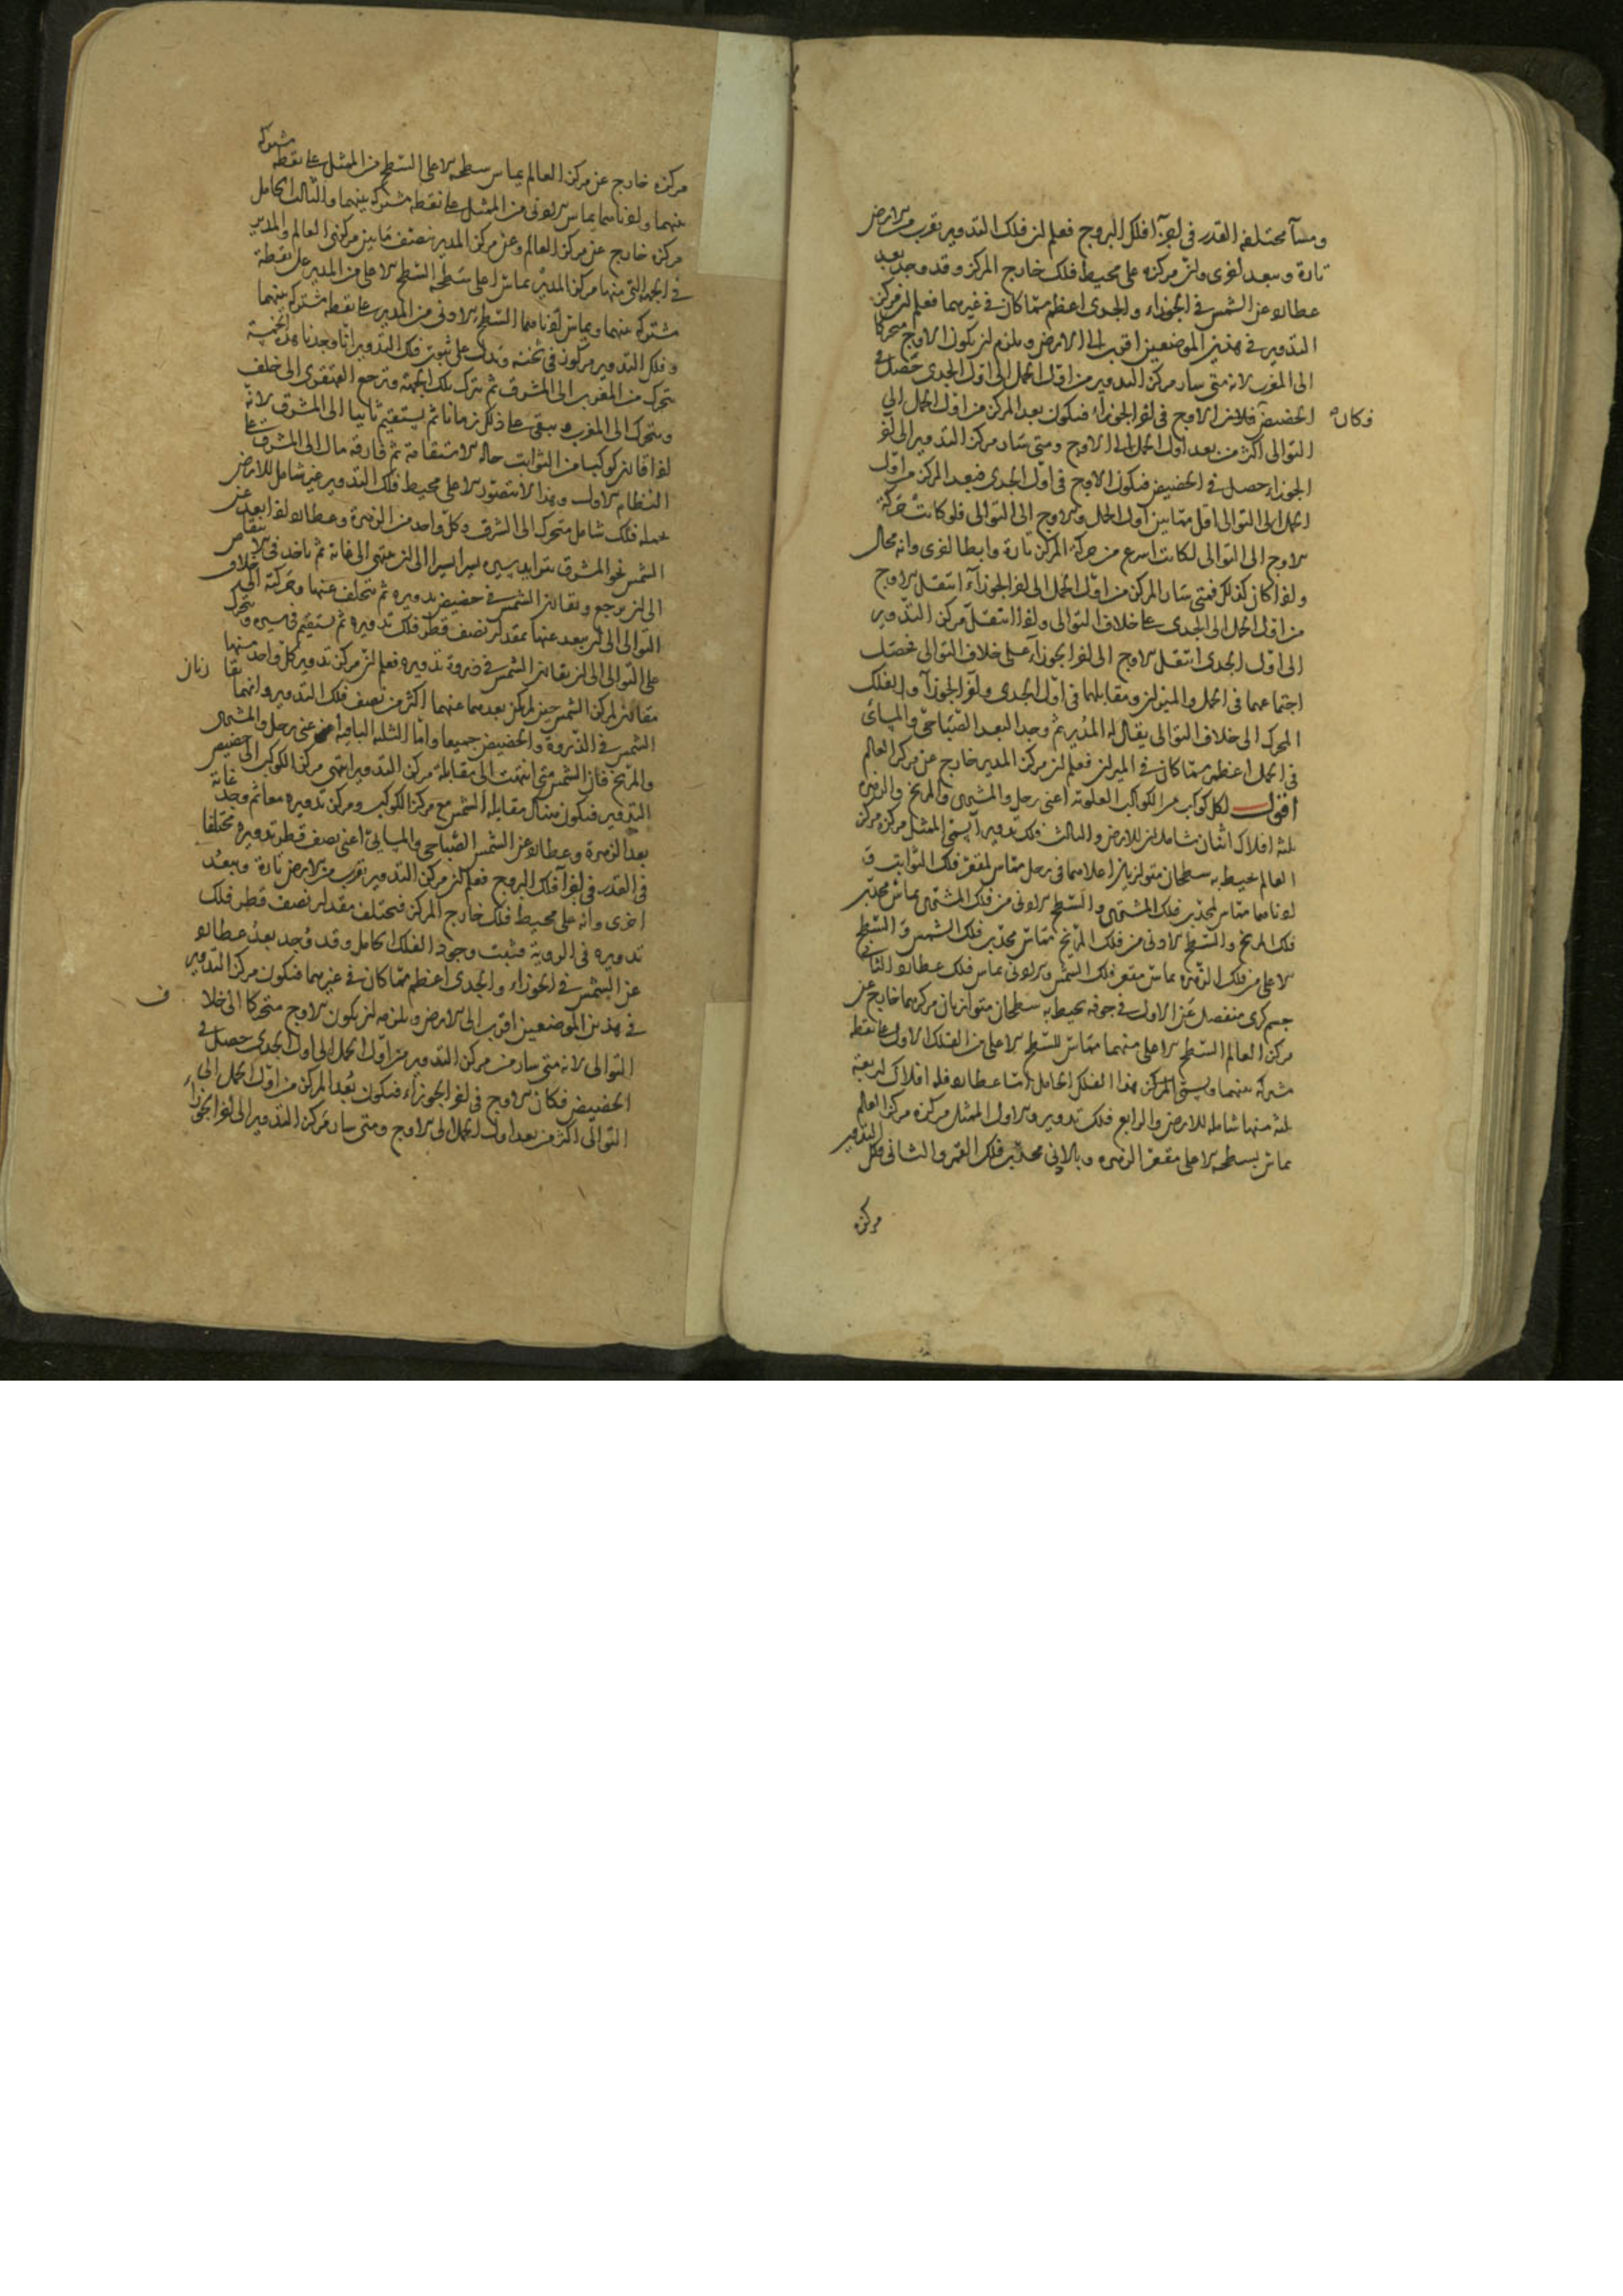 ومساءً مختلفة القدر في اجزآ افلك البروج فعلم ان فلك التدوير يقرب من الارض
تارة ويبعد اخرى وان مركزه على محيط فلك خارج المركز وقد وجد بعد
عطارد عن الشمس في الجوزاء والجدى اعظم مما كان في غيرهما فعلم ان مركز
التدوير في هذين الموضعين اقرب الى الارض ويلزم ان يكون الاوج متحركا
الى المغرب لانه متى سار مركز التدوير من اول الحمل الى اول الجدى حصل في
الحضيض فلان الاوج في اخر الجوزاء فيكون بعد المركز من اول الحمل الى
فكان
التوالى اكثر من بعد اول الحمل الى الاوج ومتى سار مركز التدوير الى اخر
الجوزاء حصل في الحضيض فيكون الاوج في اول الجدى فبعد المركز من اول
الحمل الى التوالى اقل مما بين اول الحمل والاوج الى التوالى فلو كانت حركة
الاوج الى التوالى لكانت اسرع من حركة المركز تارة وابطا اخرى وانه محال
واذا كان كذلك فمتى سار المركز من اول الحمل الى اخر الجوزآء انتقل الاوج
من اول الحمل الى الجدى على خلاف التوالى واذا انتقل مركز التدوير
الى اول الجدى انتقل الاوج الى اخر الجوزآء على خلاف التوالى فحصل
اجتماعهما في الحمل والميزان ومقابلهما في اول الجدى واخر الجوزآء والفلك
المحرك الى خلاف التوالى يقال له المدير ثم وجد البعد الصباحى والمسائى
في الحمل اعظم مما كان في الميزان فعلم ان مركز المدير خارج عن مركز العالم
اقول لكل كوكب من الكواكب العلوية اعنى زحل والمشترى والمريخ والزهرة
ثلثة افلاك اثنان شاملان للارض والثالث فلك تدوير آ يسمى الممثل مركزه مركز
العالم يحيط به سطحان متوازيان اعلاهما في زحل مماس لمقعر فلك الثوابت و
ادناهما مماس لمحدب فلك المشترى والسطح الادنى من فلك المشترى يماس محدب
فلك المريخ والسطح الادنى من فلك المريخ مماس محدب فلك الشمس والسطح
الاعلى من فلك الزهرة يماس مقعر فلك الشمس والادنى يماس فلك عطارد الثانى
جسم كرى منفصل عن الاول في جوفه يحيط به سطحان متوازيان مركزهما خارج عن
مركز العالم السطح الاعلى منهما مماس للسطح الاعلى من الفلك الاول على نقطة
مشتركة بينهما ويسمى المركز بهذا الفلك الحامل اما عطارد فله افلاك اربعة
ثلثة منها شاملة للارض والرابع فلك تدوير والاول الممثل مركزه مركز العالم
يماس بسطحه الاعلى مقعر الزهرة وبالادنى محدب فلك القمر والثانى فلك التدوير
مركزه
مركزه خارج عن مركز العالم يماس سطحه الاعلى السطح من الممثل على نقطة مشتركة
بينهما وادناهما يماس الادنى من الممثل على نقطة مشتركة بينهما والثالث الحامل
مركزه خارج عن مركز العالم وعن مركز المدير بنصف ما بين مركزى العالم والمدير
في الجهة التى منها مركز المدير يماس اعلى سطحه السطح الاعلى من المدير على نقطة
مشتركة بينهما ويماس ادناهما السطح الادنى من المدير على نقطة مشتركة بينهما
وفلك التدوير مركوز في ثخنه ويدل على ثبوت فلك التدوير انا وجدنا هذه الخمسة
تتحرك من المغرب الى المشرق ثم تترك تلك الجهة وترجع القهقرى الى خلف
وتتحرك الى المغرب وتبقى على ذلك زمانا ثم يستقيم ثانيا الى المشرق لانه
اذا قارن كوكبا من الثوابت حالة الاستقامة ثم فارقه مال الى المشرق على
النظام الاول وهذا لا يتصور الا على محيط فلك التدوير غير شامل للارض
يحمله فلك شامل متحرك الى الشرق وكل واحد من الزهرة وعطارد اذا بعد عن
الشمس نحو المشرق يتزايد سيره يسيرا يسيرا الى ان ينتهى الى غاية ثم ياخذ في التناقص
الى ان يرجع ويقارن الشمس في حضيض تدويره ثم يتخلف عنها وحركته الى خلاف
التوالى الى ان يبعد عنها بمقدار نصف قطر فلك تدويره ثم يستقيم في سيره ويتحرك
على التوالى الى ان يقارن الشمس في ذروة تدويره فعلم ان مركز تدوير كل واحد منهما
مقارن لمركز الشمس حين لم يكن بعدهما عنهما اكثر من نصف فلك التدوير وانهما يقا
رنان
الشمس في الذروة والحضيض جميعا واما الثلثة الباقية اعنى زحل والمشترى
والمريخ فان الشمس متى انتهت الى مقابلة مركز التدوير انتهى مركز الكوكب الى حضيض
التدوير فيكون هناك مقابلة الشمس مع مركز الكوكب ومركز تدويره معا ثم وجد غاية
بعد الزهرة وعطارد عن الشمس الصباحى والمسائى اعنى نصف قطر تدويره مختلفا
في القدر في اجزآ فلك البروج فعلم ان مركز التدوير يقرب من الارض تارة ويبعد
اخرى وانه على محيط فلك خارج المركز فيختلف مقدار نصف قطر فلك
تدويره في الروية فثبت وجود الفلك الحامل وقد وجد بعد عطارد
عن الشمس في الجوزاء والجدى اعظم مما كان في غيرهما فيكون مركز التدوير
في هذين الموضعين اقرب الى الارض ويلزمه ان يكون الاوج متحركا الى خلا
ف
التوالى لانه متى سار من مركز التدوير من اول الحمل الى اول الجدى حصل في
الحضيض فكان الاوج في اخر الجوزاء فيكون بعد المركز من اول الحمل الى
التوالى اكثر من بعد اول الحمل الى الاوج ومتى سار مركز التدوير الى اخر الجوزاء